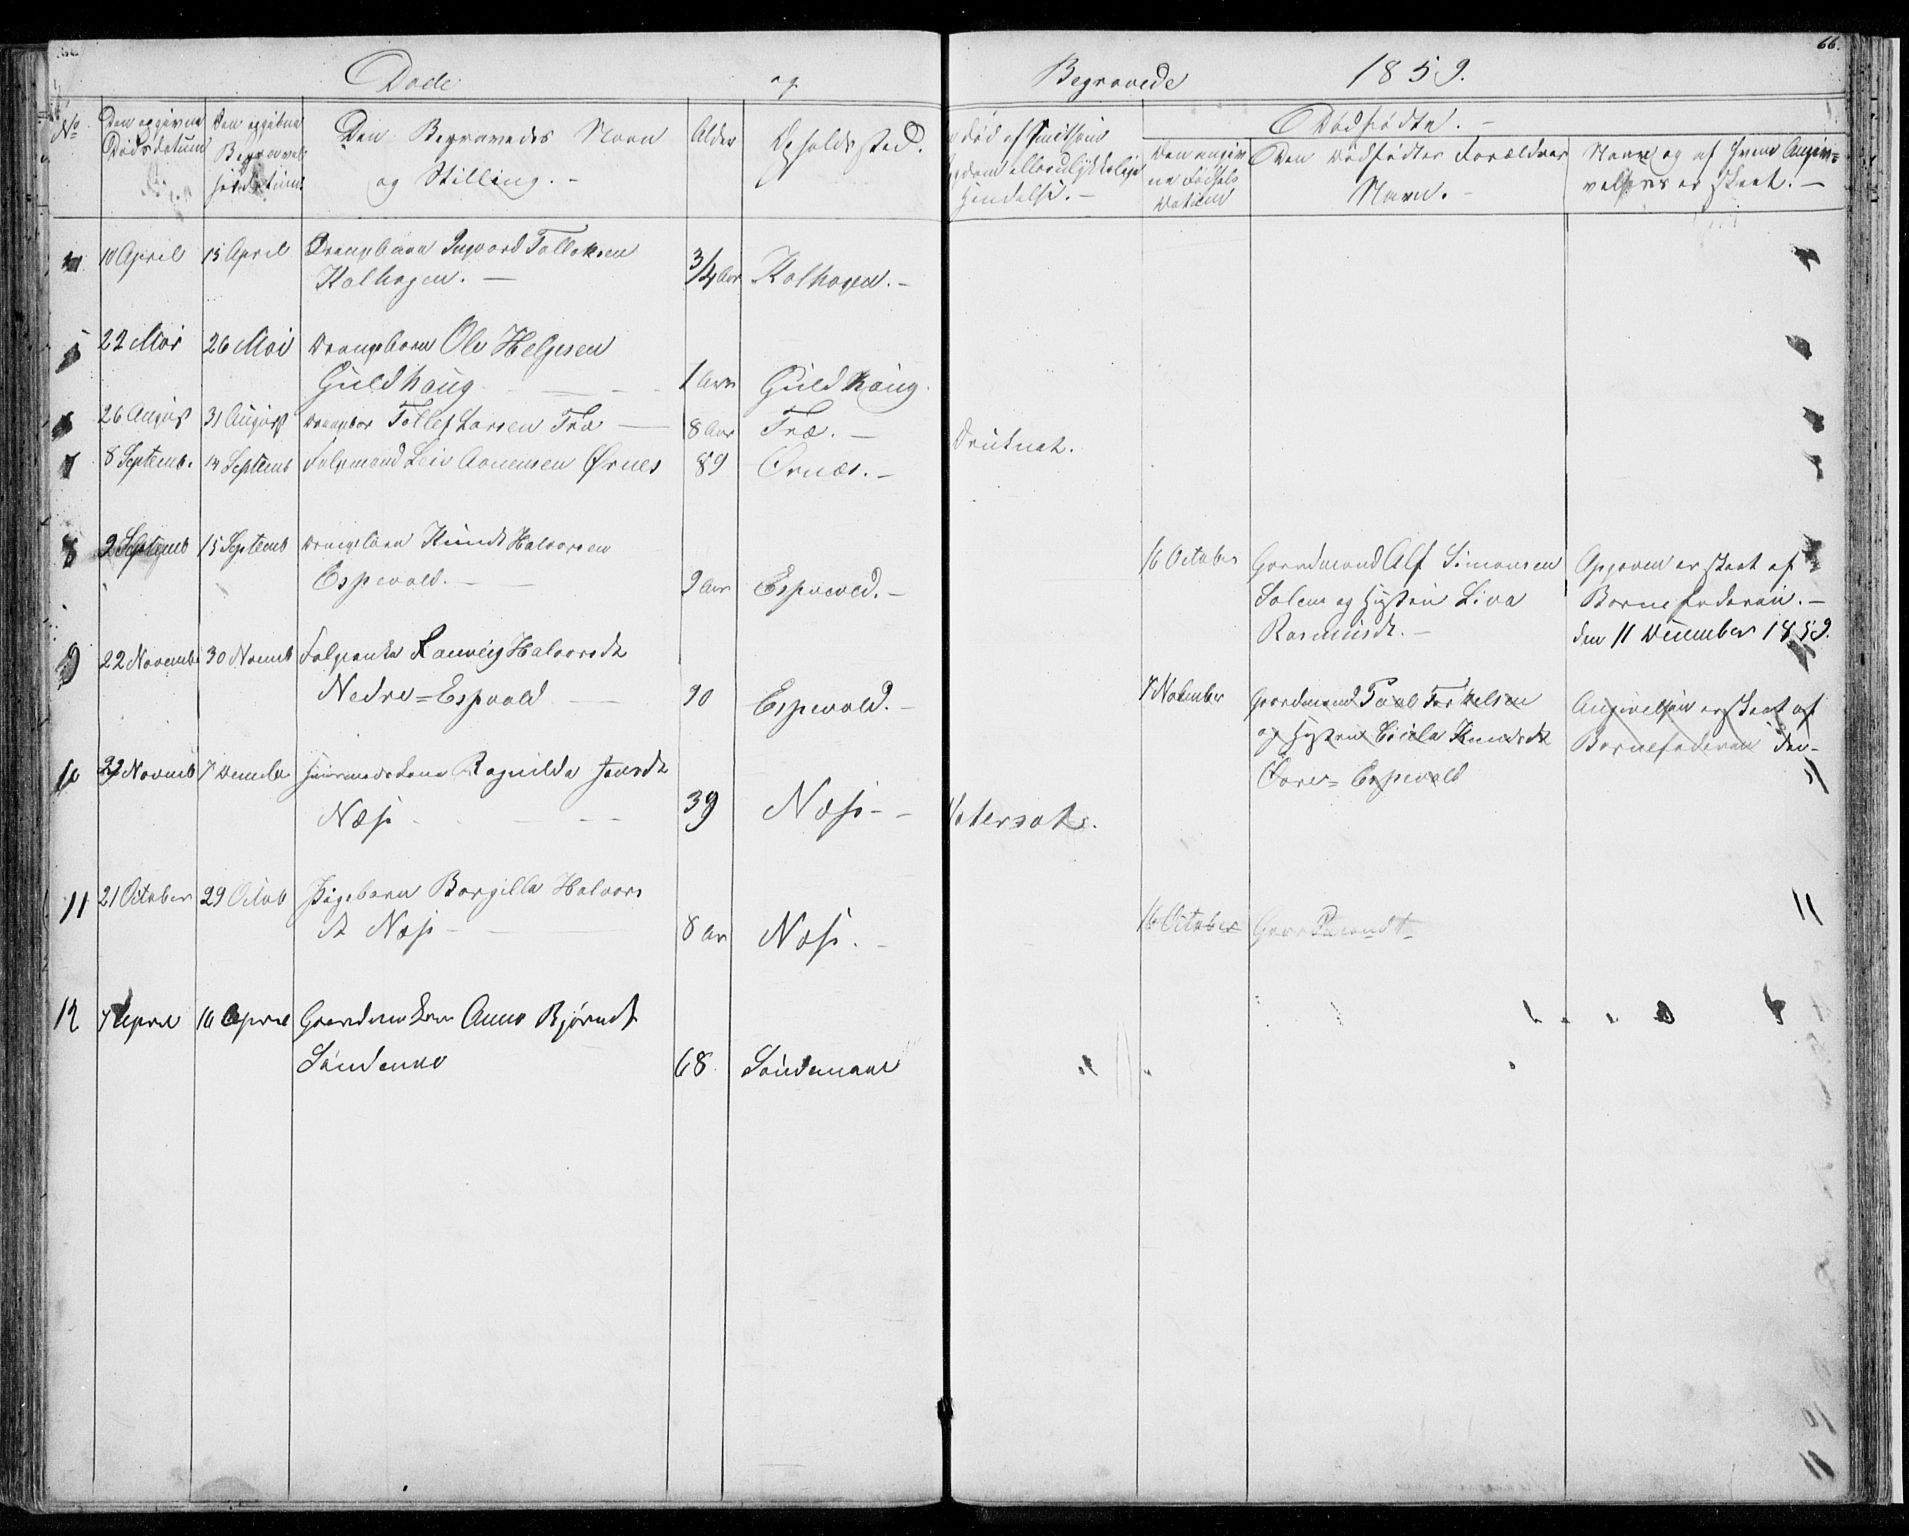 66.
Døde og Begravede 1859.
No
Den opgivne Dødsdatum
Den opgivne Begravel-
sesdatum
Den Begravedes Navn
og Stilling. -
Alder
Opholdssted.
død af smitsom
Sygdom eller ulykkelige
Hendelse. -
Dødfødte. -
Den angiv-
ne Fødsels
Datum
Den Dødfødtes Forældres
Navn. -
Navn og af hvem Angiv-
velsen er skeet. -
4 10 April 15 April Drengebarn Ingvard Tolleksen
Kolhagen. - 3/4 Aar Kolhagen. -
5 22 Mai 26 Mai Drengebarn Ole Helgesen
Guldhaug 1 Aar Guldhaug.
6 26 August 31 August Drengebar Tollef Larsen Træ - 8 Aar Træ. - Druknet.
7 8 Septemb. 14 Septemb Folgemand Leiv Aanensen Ørnes 89 Ørnæs. -
8 2 Septemb 15 Septemb Drengebarn Knud Halvorsen
Espevold. - 9 Aar Espeved. -
16 October Gaardmand Alf Simonsen
Solem og Hustru Liva
Rasmusdt. -
Opgaven er skeet af
Barnefaderen. -
den 11 December 1859.
9 22 Novemb 30 Novemb Folgeenke Ranveig Halvorsdt
Nedre=Espvold 90 Espevold. -
7 November Gaardmand Paul Torkelsen
og Hustru Cicela Knudsdt
Øvre= Espevold
Angivelsen er skeet af
Barnefaderen den -
10 22 Novemb 7 Decembr Huusmandskone Ragnilda Jonsdt
Næss 39 Næss - - Vatersot.
11 21 October 29 Octob Pigebarn Borgilla Halvors
dt Næss - 8 Aar Næss. -
16 October Gaardmand
11
12 7 April 16 April Gaardmandskone Anne Bjørnsdt
Søndenaa 68 Søndenaae
10
11